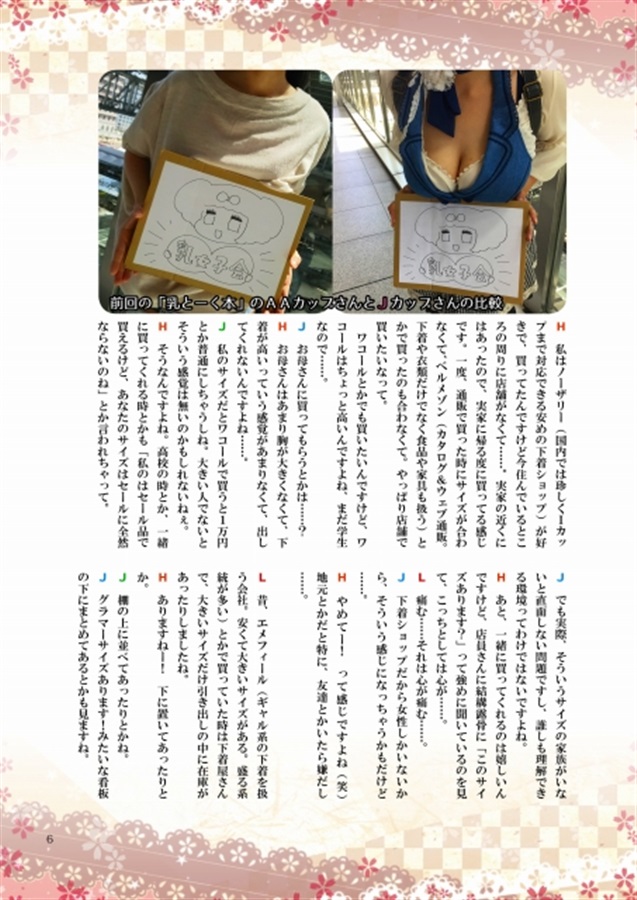 乳女子会
乳女子会
前回の「乳とーく本」のAAカップさんとJカップさんの比較
H 私はノーザリー(国内では珍しくIカッ
プまで対応できる安めの下着ショップ)が好
きで、買ってたんですけど今住んでいるとこ
ろの周りに店舗がなくて……。実家の近くに
はあったので、実家に帰る度に買ってる感じ
です。一度、通販で買った時にサイズが合わ
なくて、ベルメゾン(カタログ&ウェブ通販。
下着や衣類だけでなく食品や家具も扱う)と
かで買ったのも合わなくて。やっぱり店舗で
買いたいなって。
ワコールとかでも買いたいんですけど、ワ
コールはちょっと高いんですよね、まだ学生
なので……。
J お母さんに買ってもらうとかは……?
H お母さんはあまり胸が大きくなくて、下
着が高いっていう感覚があまりなくて、出し
てくれないんですよね……。
J 私のサイズだとワコールで買うと1万円
とか普通にしちゃうしね。大きい人でないと
そういう感覚は無いのかもしれないねぇ。
H そうなんですよね。高校の時とか、一緒
に買ってくれる時とかも「私のはセール品で
買えるけど、あなたのサイズはセールに全然
ならないのね」とか言われちゃって。
J でも実際、そういうサイズの家族がいな
いと直面しない問題ですし、誰しも理解でき
る環境ってわけではないですよね。
H あと、一緒に買ってくれるのは嬉しいん
ですけど、店員さんに結構露骨に「このサイ
ズあります?」って強めに聞いているのを見
て、こっちとしては心が……。
L 痛む……それは心が痛む……。
J 下着ショップだから女性しかいないか
ら、そういう感じになっちゃうかもだけど
……。
H やめてー!って感じですよね(笑)
地元とかだと特に、友達とかいたら嫌だし
……。
L 昔、エメフィール(ギャル系の下着を扱
う会社。安くて大きいサイズがある。盛る系
統が多い)とかで買っていた時は下着屋さん
で、大きいサイズだけ引き出しの中に在庫が
あったりしましたね。
H ありますねー!下に置いてあったりと
か。
J 棚の上に並べてあったりとかね。
J グラマーサイズあります!みたいな看板
の下にまとめてあるとかも見ますね。
6